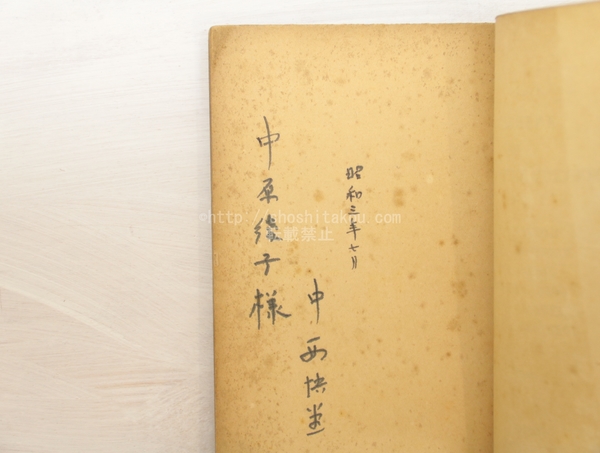 昭和三年七月
中西悟堂
中原綾子様
転載禁止